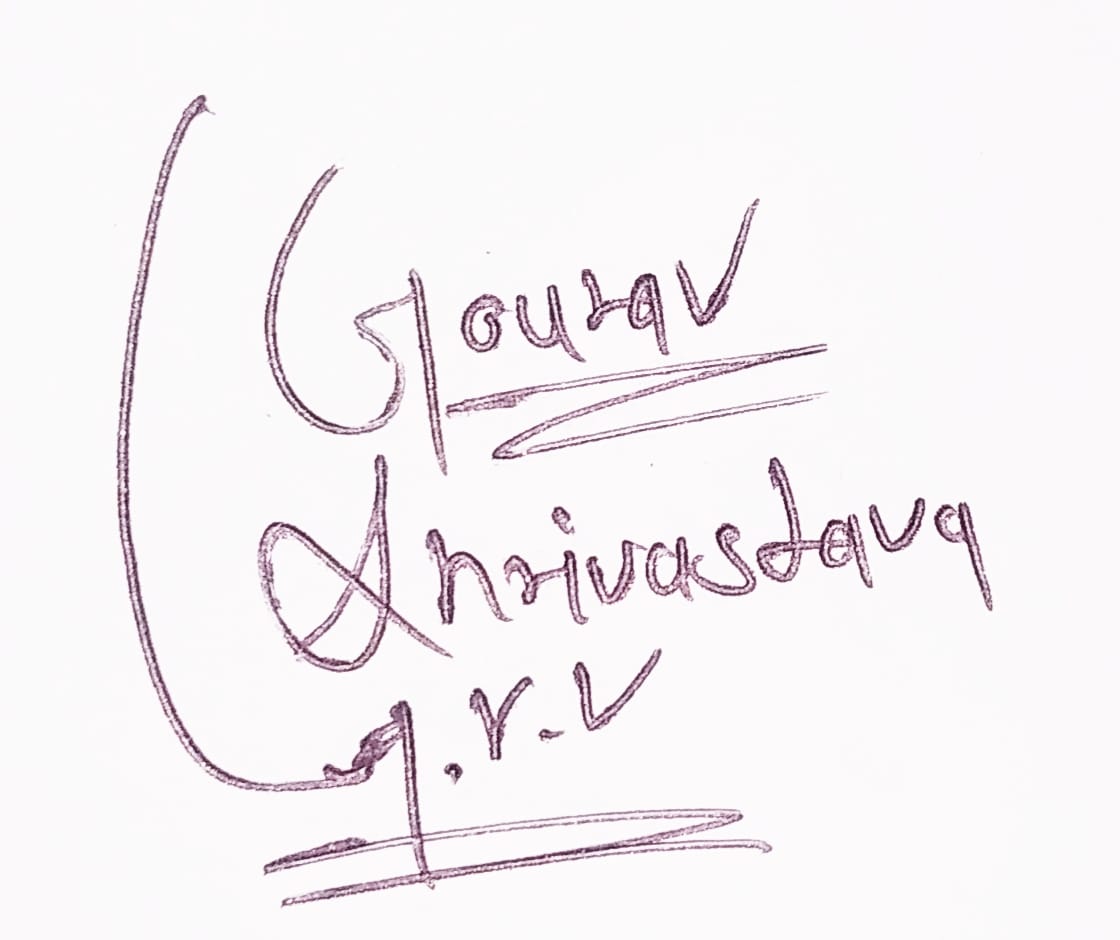 Gourav
Shrivastava
G.r.v